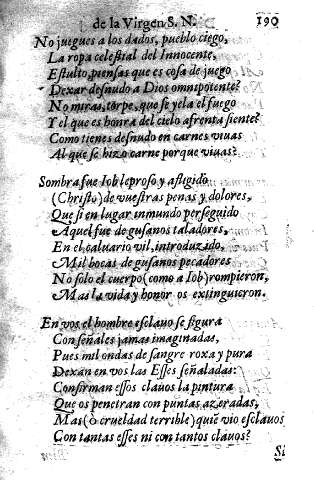 de la Virgen S. N. 190
No juegues a los dados, pueblo ciego,
La ropa celestial del Innocente,
Estulto, piensas que es cosa de juego
Dexar desnudo a Dios omnipotente?
No miras, torpe, que se yela el fuego
Y el que es honra del cielo afrenta siente?
Como tienes desnudo en carnes viuas
Al que se hizo carne porque viuas?
Sombra fue Iob leproso y afligido
(Christo) de vuestras penas y dolores,
Que si en lugar inmundo perseguido
Aquel fue de gusanos taladores,
En el caluario vil, introduzido,
Mil bocas de gusanos pecadores
No solo el cuerpo (como a Iob) rompieron,
Mas la vida y honor os extinguieron.
En vos el hombre esclauo se figura
Con señales jamas imaginadas,
Pues mil ondas de sangre roxa y pura
Dexan en vos las Esses señaladas:
Confirman essos clauos la pintura
Que os penetran con puntas azeradas,
Mas (ò crueldad terrible) quiē vio esclauos
Con tantas esses ni con tantos clauos?
Si